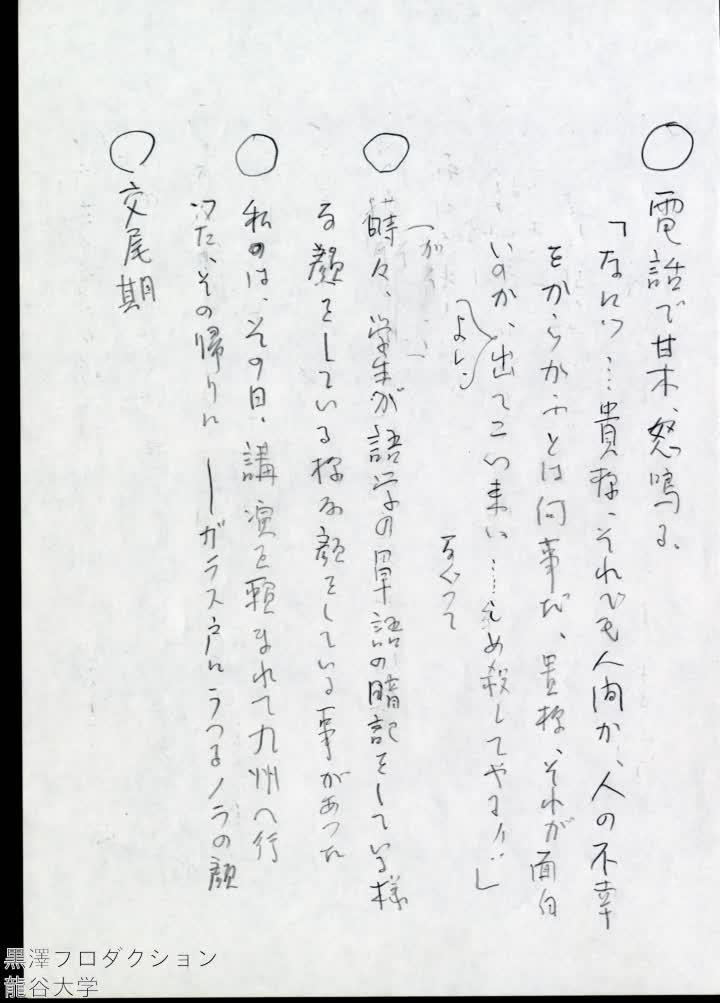 ○ 電話で甘木、怒鳴る、
「なにッ…貴様、それでも人間か、人の不幸
をからかふとは何事だ、貴様、それが面白
いのか、出てこい来い……しめ殺してやるバ」
よし、
なぐって
○ 時々、学生が語学の単語の暗記をしている様
な顔をしている様な顔をしている事があった
○ 私のは、その日、講演を頼まれて九州へ行
った、その帰りに ―ガラス戸にうつるノラの顔
○ 交尾期
黒澤プロダクション
龍谷大学